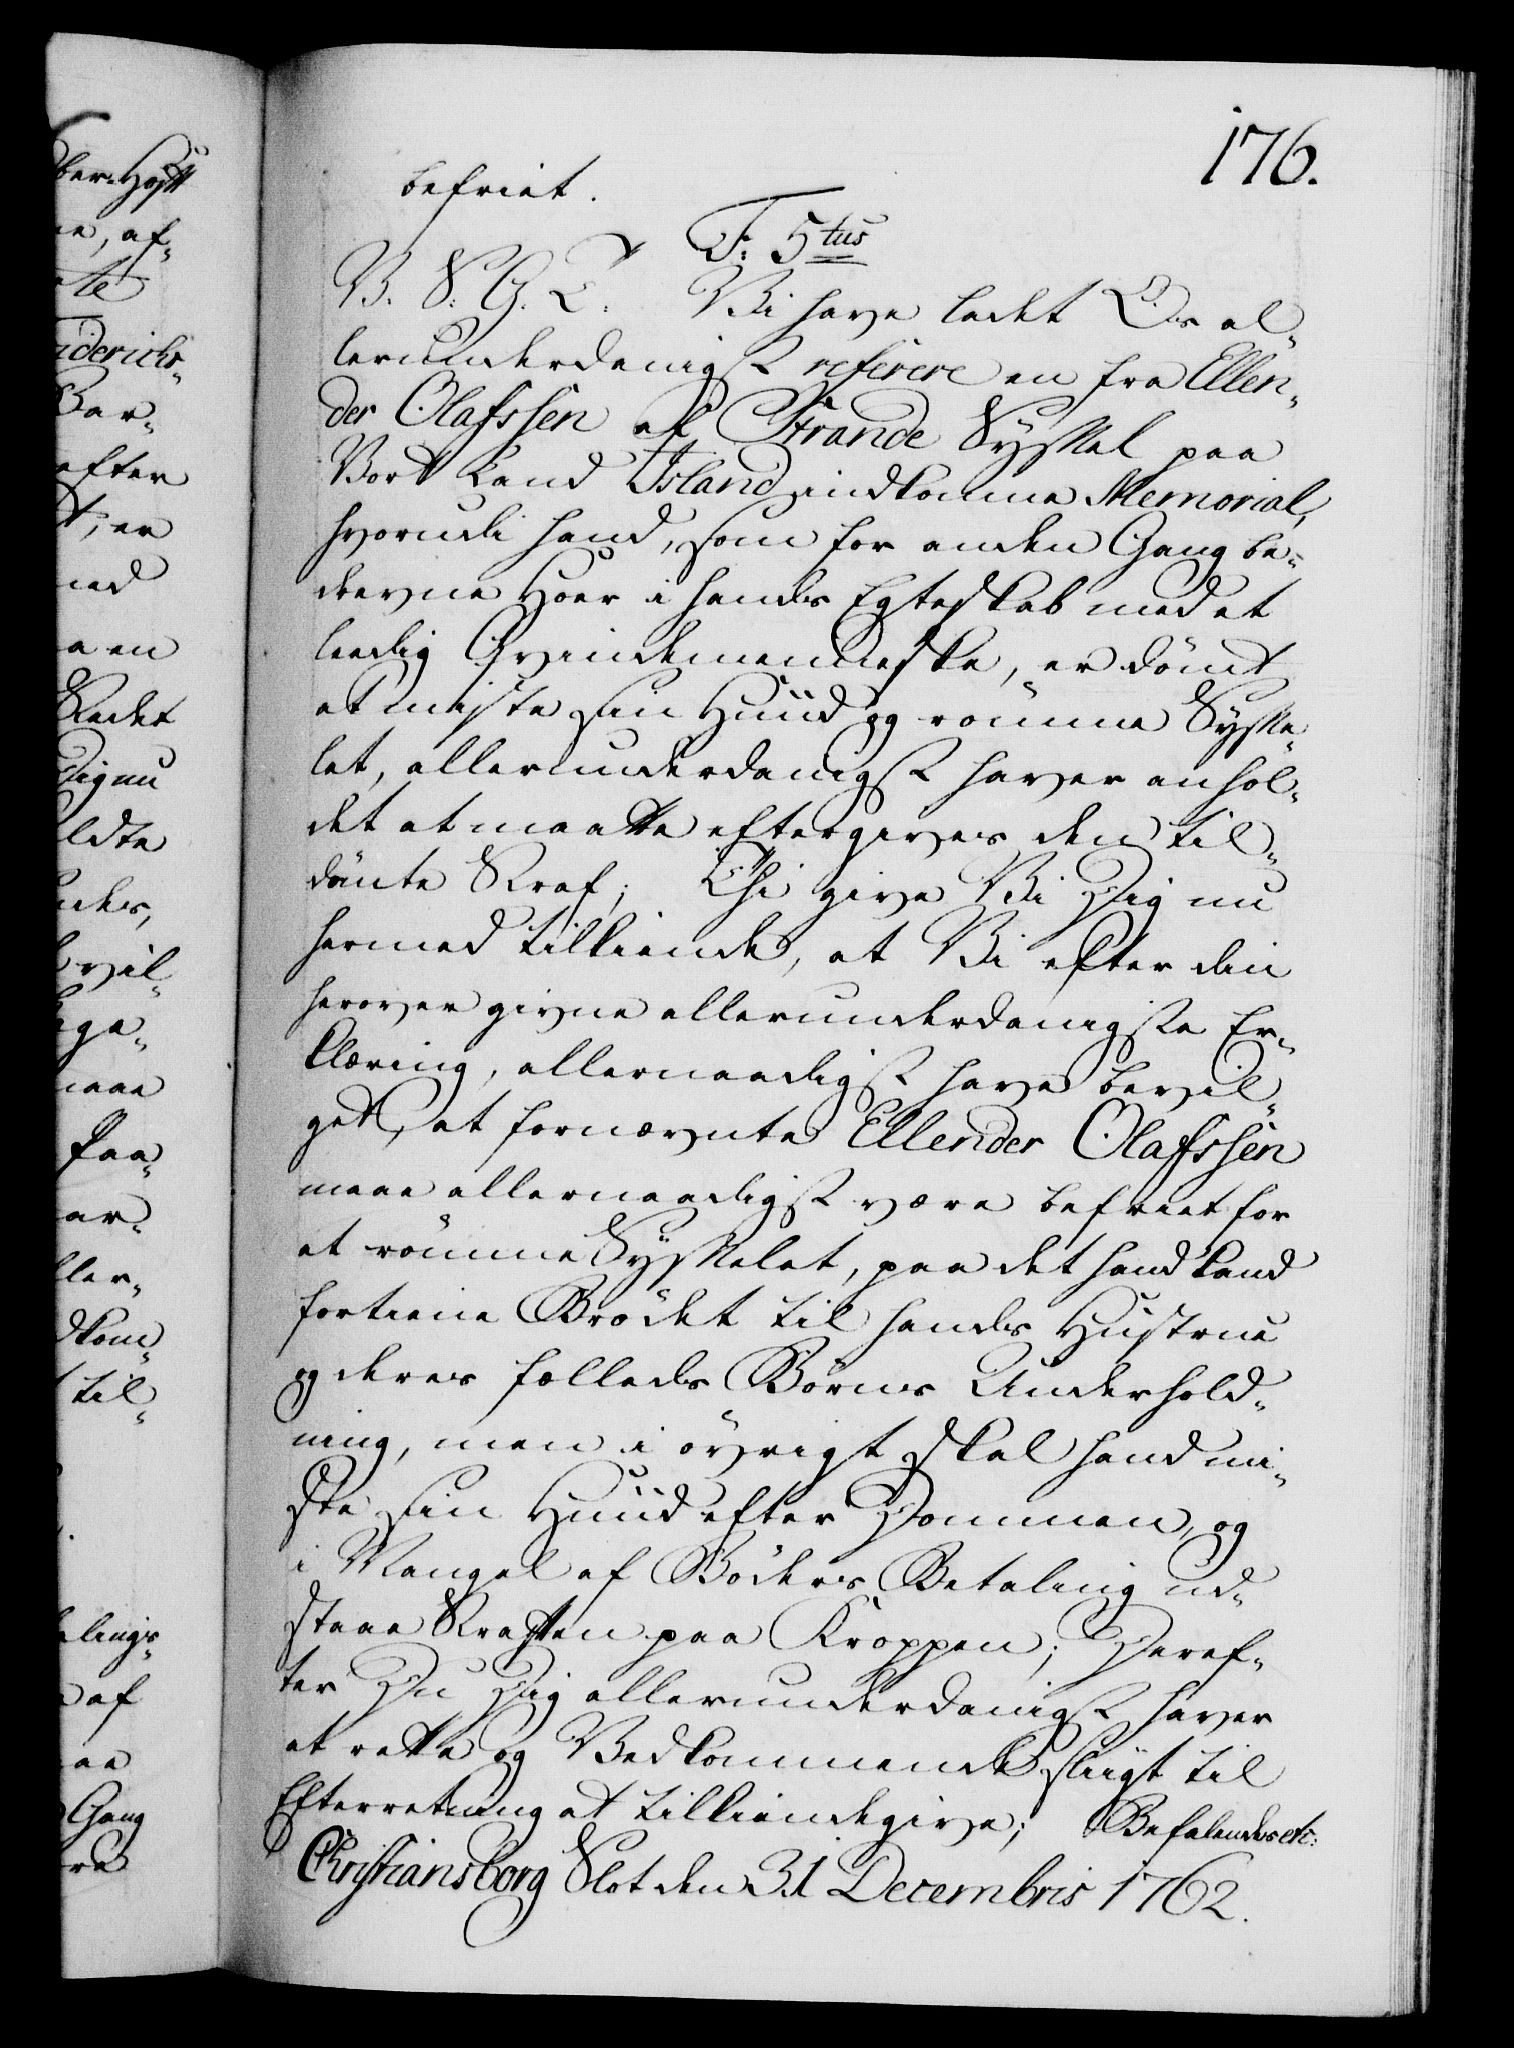 176.
befriet.
F: 5tus
V. S: G. T: Vi have ladet Os al-
lerunderdanigst referere en fra Ellen-
der Olafssen af Strande Syssel paa
Vort Land Island indkomne Memorial,
hvorudi hand, som for anden Gang be-
drevne Hoer i hands Egteskab med et
leedig Qvindemenneske, er dömt
at miste sin Huud og römme Sysse-
let, allerunderdanigst haver anhol-
det at maatte eftergives den til-
dömte Straf; Thi give Vi Dig nu
hermed tilkiende, at Vi efter din
herover givne allerunderdanigste Er-
klæring, allernaadigst have bevil-
get, at fornævnte Ellender Olafssen
maae allernaadigst være befriet for
at römme Sysselet, paa det hand kand
fortiene Brödet til hands Hustrue
og deres fælleds Börns Underhold-
ning, men i övrigt skal hand mi-
ste sin Huud efter Dommen, og
i Mangel af Böders Betaling ud-
staae Straffen paa Kroppen; Deref-
ter Du Dig allerunderdanigst haver
at rette og Vedkommende sligt til
Efterretning at tilkiendegive; Befalendes etc:
Christiansborg Slot den 31 Decembris 1762.
ber. Hojst
e, af-
te
iderichs-
Bar-
efter
t, er
ned
a en
Stadet
Dig nu
ldte
ndes,
vil-
ige-
maae
Paa-
ar-
ller-
dkom-
til-
lings-
af
ae
Gang
re